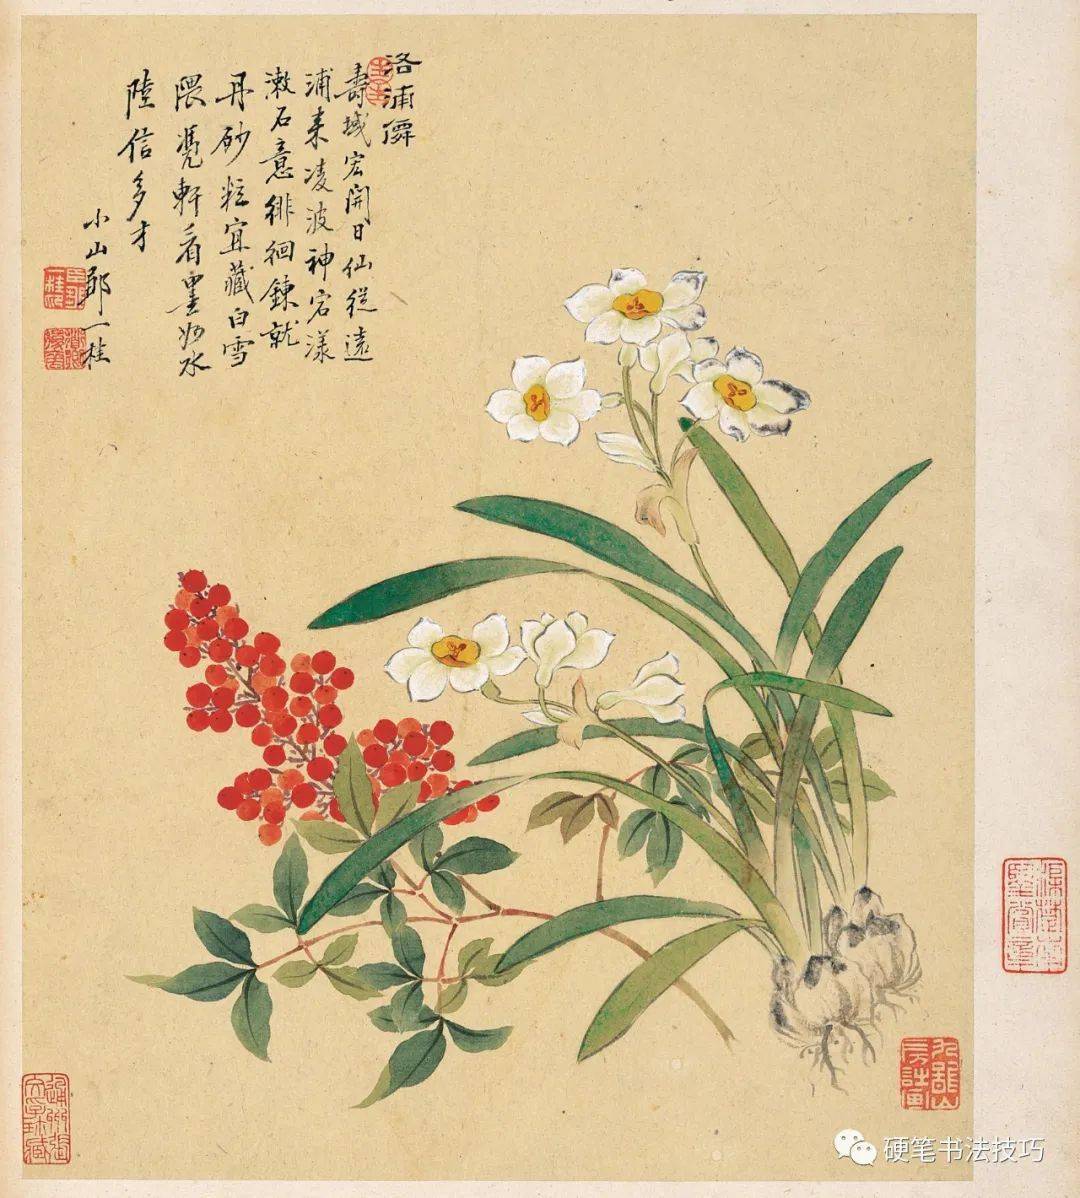 洛浦僊
壽域宏開日仙從遠
浦来凌波神宕漾
漱石意徘徊鍊就
丹砂粒宜藏白雪
隈凴軒看畫妙水
陸信多才
小山鄒一桂
硬笔书法技巧